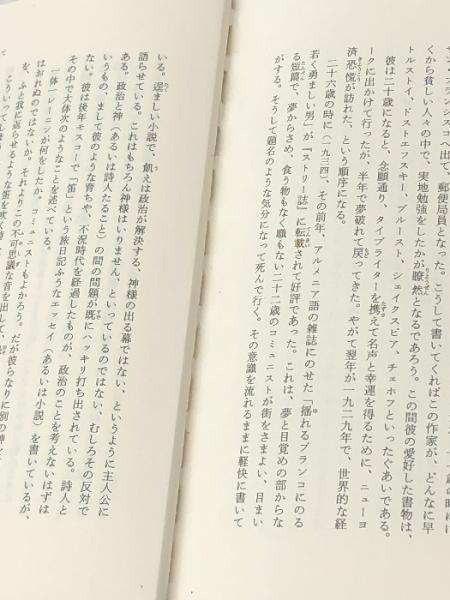 サンフランシスコへ出て、郵便局員となった。こうして書いてくればこの作家が、どんなに早
くから貧しい人々の中で、実地勉強をしたかが瞭然となるであろう。この間彼の愛好した書物は、
トルストイ、ドストエフスキー、プルースト、シェイクスピア、チェホフといったぐあいである。
彼は二十歳になると、念願通り、タイプライターを携えて名声と幸運を得るために、ニューヨ
ークに出かけて行ったが、半年で夢破れて戻ってきた。やがて翌年が一九二九年で、世界的な経
済恐慌が訪れた、という順序になる。
二十六歳の時に(一九三四)、その前年、アルメニア語の雑誌にのせた「揺れるブランコにのる
若く勇ましい男」が『ストリー誌』に転載されて好評であった。これは、夢と目覚めの部からな
る短篇で、夢からさめ、食う物もなく職もない二十二歳のコミュニストが街をさまよい、目まい
がする。そうして題名のような気分になって死んで行く。その意識を流れるままに軽快に書いて
いる。逞ましい小説で、飢えは政治が解決する、神様の出る幕ではない、というように主人公に
語らせている。これはもちろん神様はいりません、といっているのではない、むしろその反対で
ある。政治と神(あるいは詩人たること)の間の問題が既にハッキリ打ち出されている。詩人と
いうもの、まして彼のような育ちや、不況時代を経過したものが、政治のことを考えないはずは
ない。彼は後年モスコーで「笛」という旅日記ふうなエッセイ(あるいは小説)を書いているが、
その中で大体次のようなことを述べている。
一体一レーニンが何をしたか。コミュニストもよかろう。だが彼らなりに別の神しく
はおれぬのではないか。それよりこの不可思議な音を出して、
を、ふと我に返らせるような笛を吹く
こういって